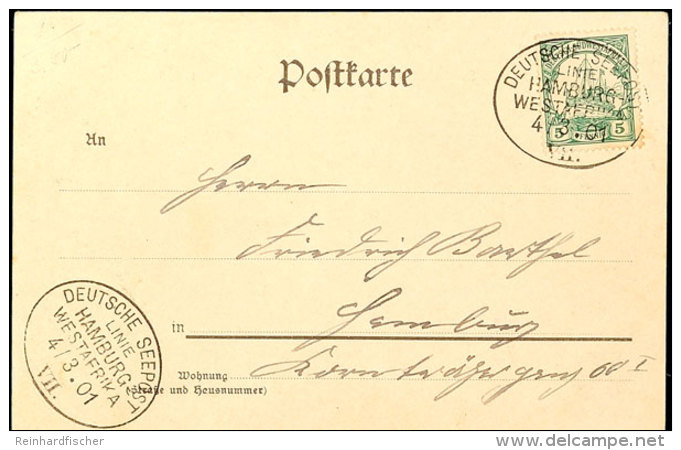 Postkarte
DEUTSCHE SEEPOST
LINIE
HAMBURG-
WESTAFRIKA
4/3.01
VII.
5 5
An
Herrn
Friedrich Barthel
in Hamburg
Wohnung
(Straße und Hausnummer)
Kornträgergang 60 I
DEUTSCHE SEEPOST
LINIE
HAMBURG-
WESTAFRIKA
4/3.01
VII.
Reinhardfischer
delcampe.net